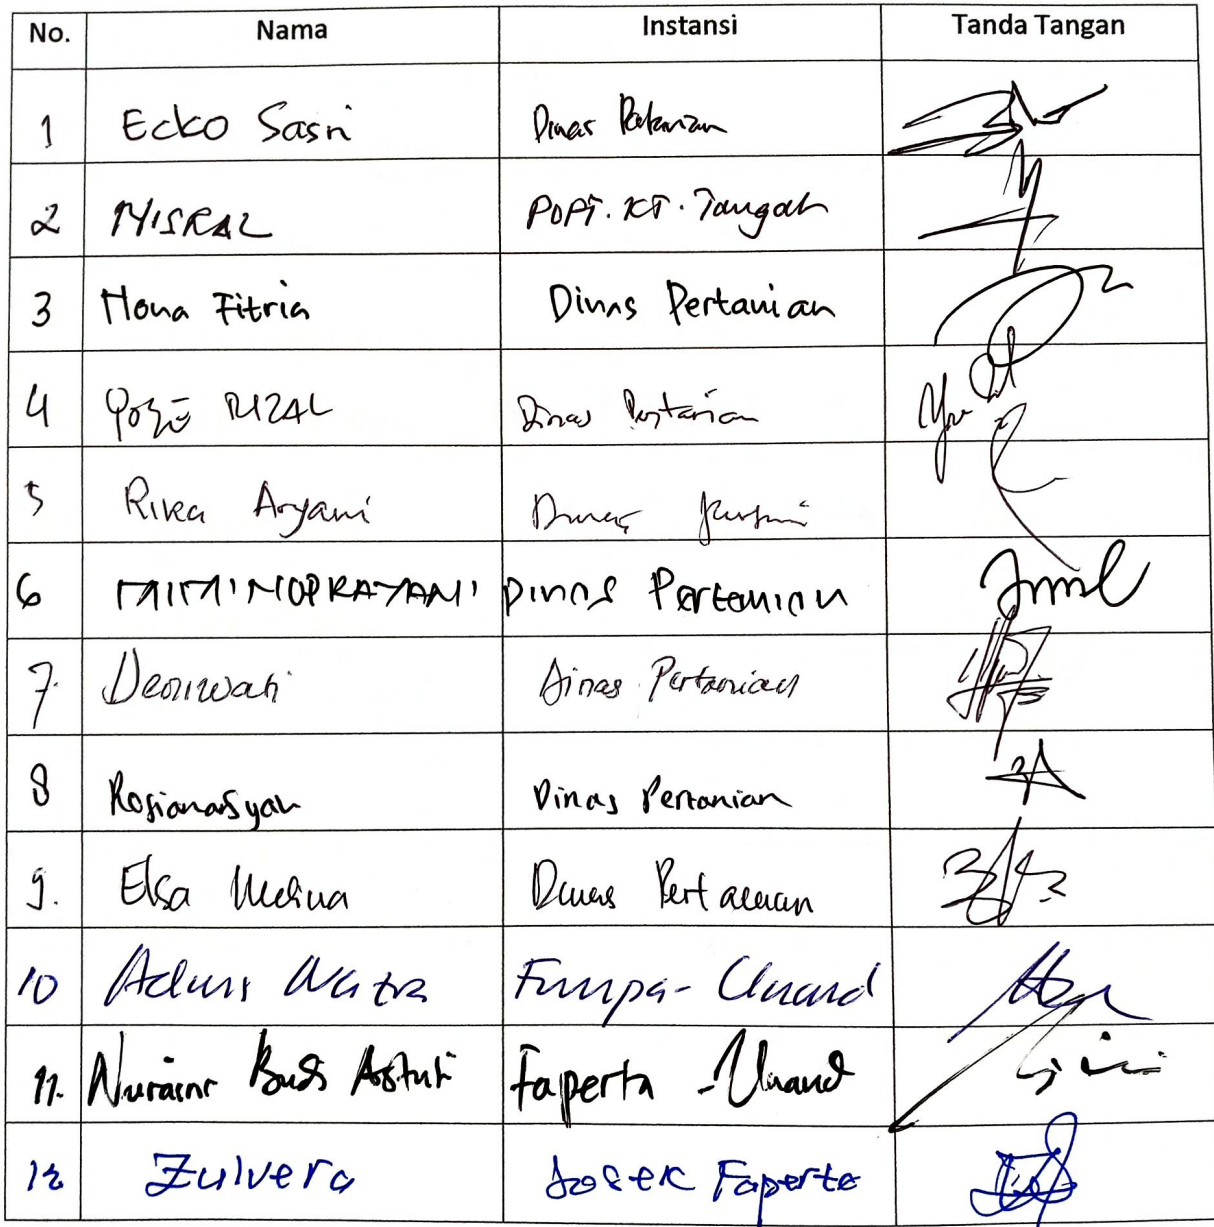 No. Nama Instansi Tanda Tangan
1 Ecko Sasri Dinas Pertanian
2 MISRAL POPT. KT. Tangah
3 Mona Fitria Dinas Pertanian
4 RIZAL Dinas Pertanian
5 Rika Aryani Dinas
6 Dinas Pertanian
7. Deniwati Dinas Pertanian
8 Rosianasyah Dinas Pertanian
9. Elsa Melina Dinas Pertanian
10 Unand
11. Nuraini Budi Astuti Faperta - Unand
12 Zulvera Faperta